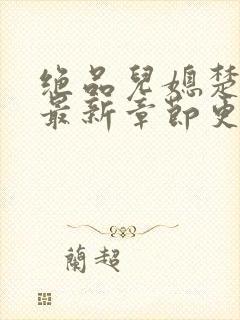 绝品兒媳楚
最新章節更
蘭超